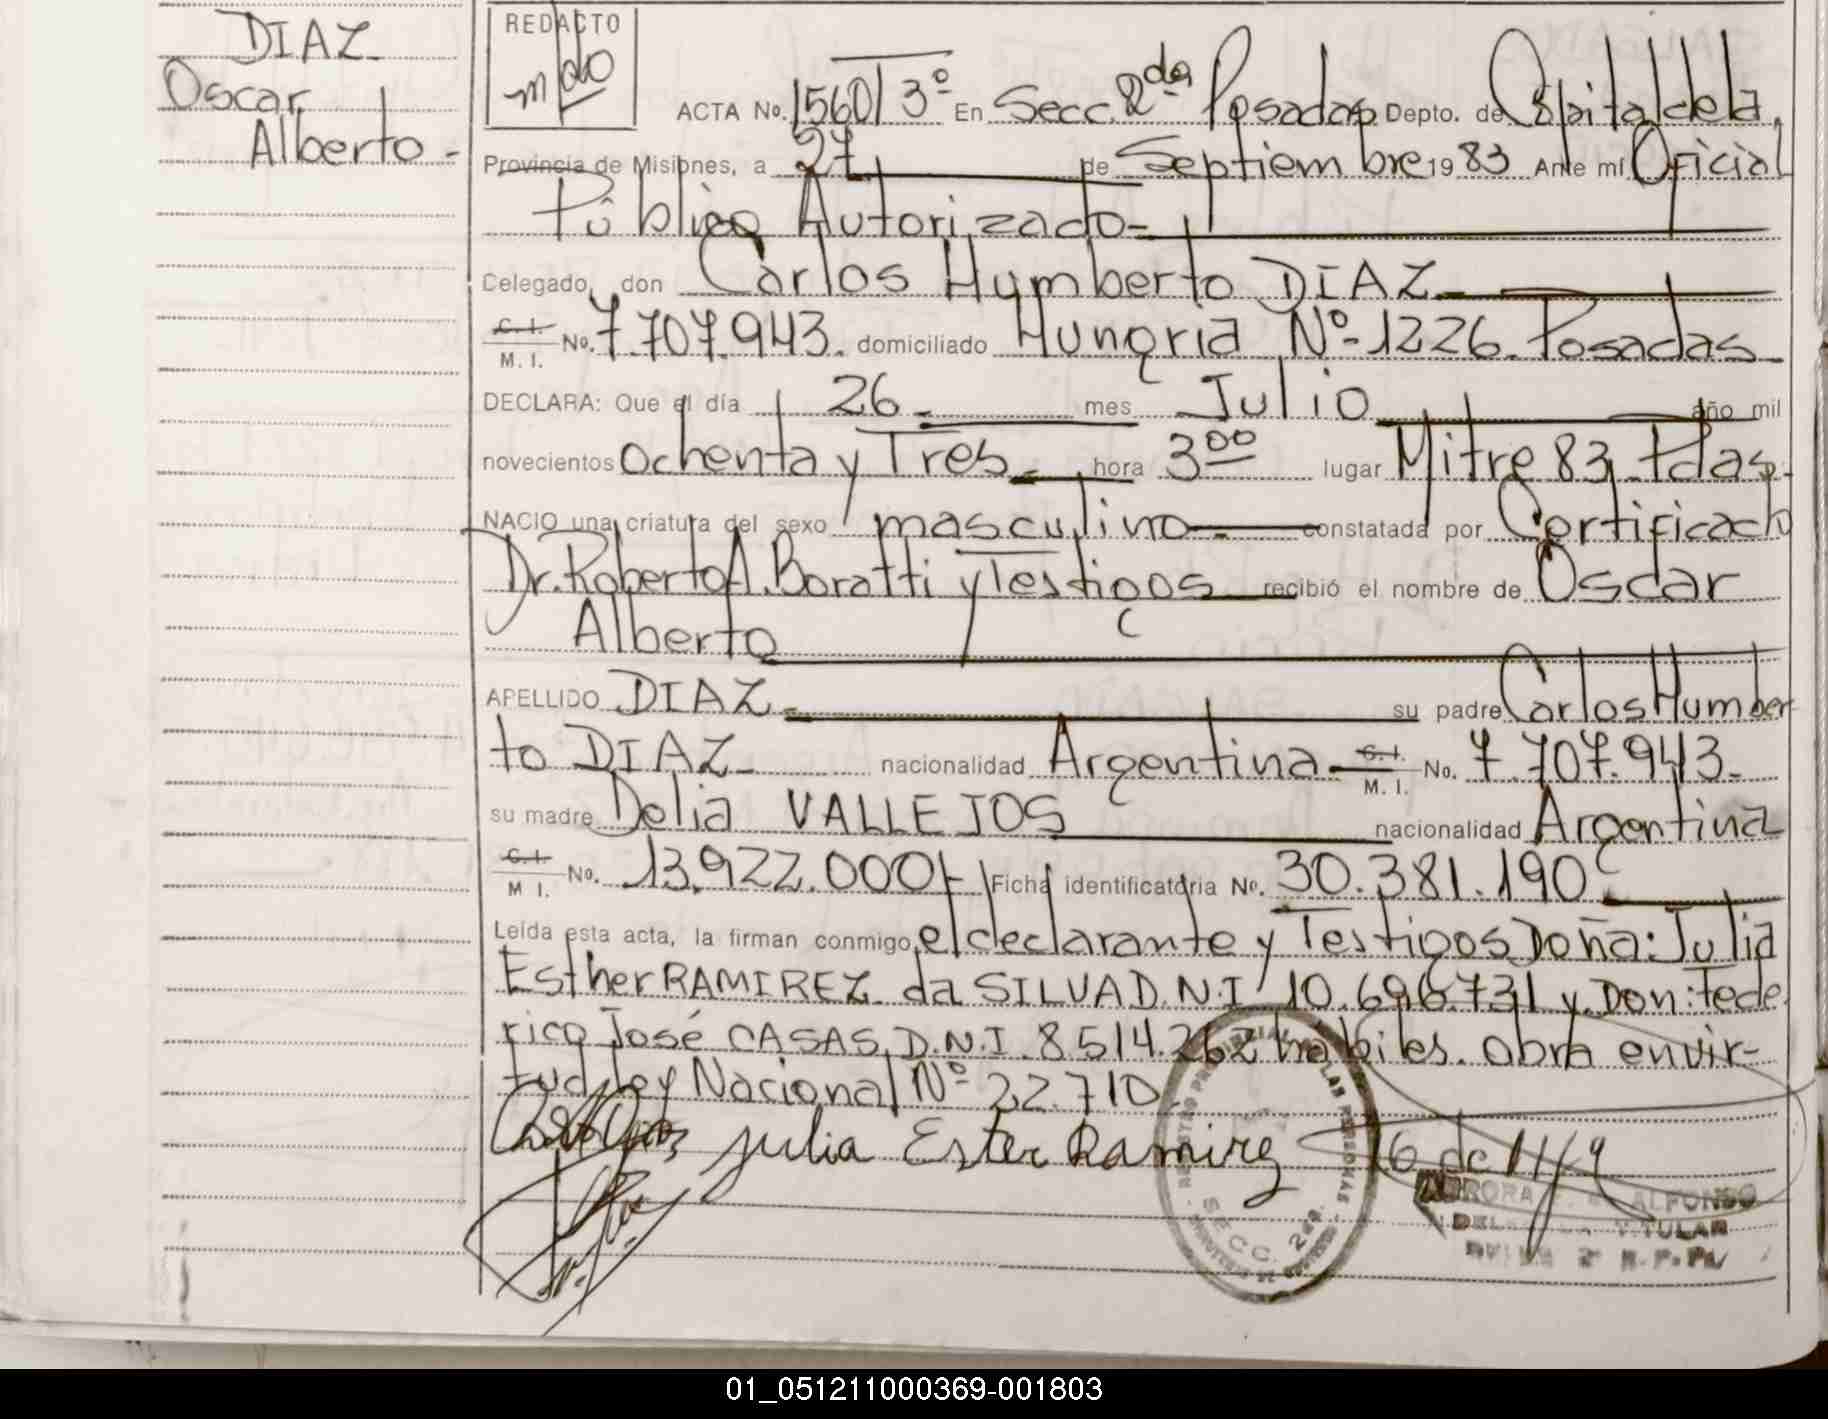 DIAZ
Oscar
Alberto -
REDACTO
ACTA No. 1560 / 3º En Secc. 2da Posadas Depto. de Capital de la
Provincia de Misiones, a 27 de Septiembre 1983 Ante mí Oficial
Público Autorizado-
Celegado, don Carlos Humberto DIAZ
C.I. / M. I. No. 7.707.943. domiciliado Hungria Nº-1226. Posadas
DECLARA: Que el día 26 mes Julio año mil
novecientos ochenta y Tres hora 3 00 lugar Mitre 83 Pdas.
NACIO una criatura del sexo masculino constatada por Certificado
Dr. Roberto A. Boratti y Testigos recibió el nombre de Oscar
Alberto
APELLIDO DIAZ su padre Carlos Humber
to DIAZ nacionalidad Argentina C.I. / M. I. No. 7.707.943.
su madre Delia VALLEJOS nacionalidad Argentina
C.I. / M I. No. 13.922.000 Ficha identificatoria No. 30.381.190
Leída esta acta, la firman conmigo, el declarante y Testigos Doña: Julia
Esther RAMIREZ da SILVA D.N.I 10.696.731 y Don: Fede
rico José CASAS D.N.I. 8.514.262 habiles. obra en vir-
tud ley Nacional Nº 22.710
Julia Ester Ramirez
ALFONSO
TITULAR
SECC. 2da.
01_051211000369-001803